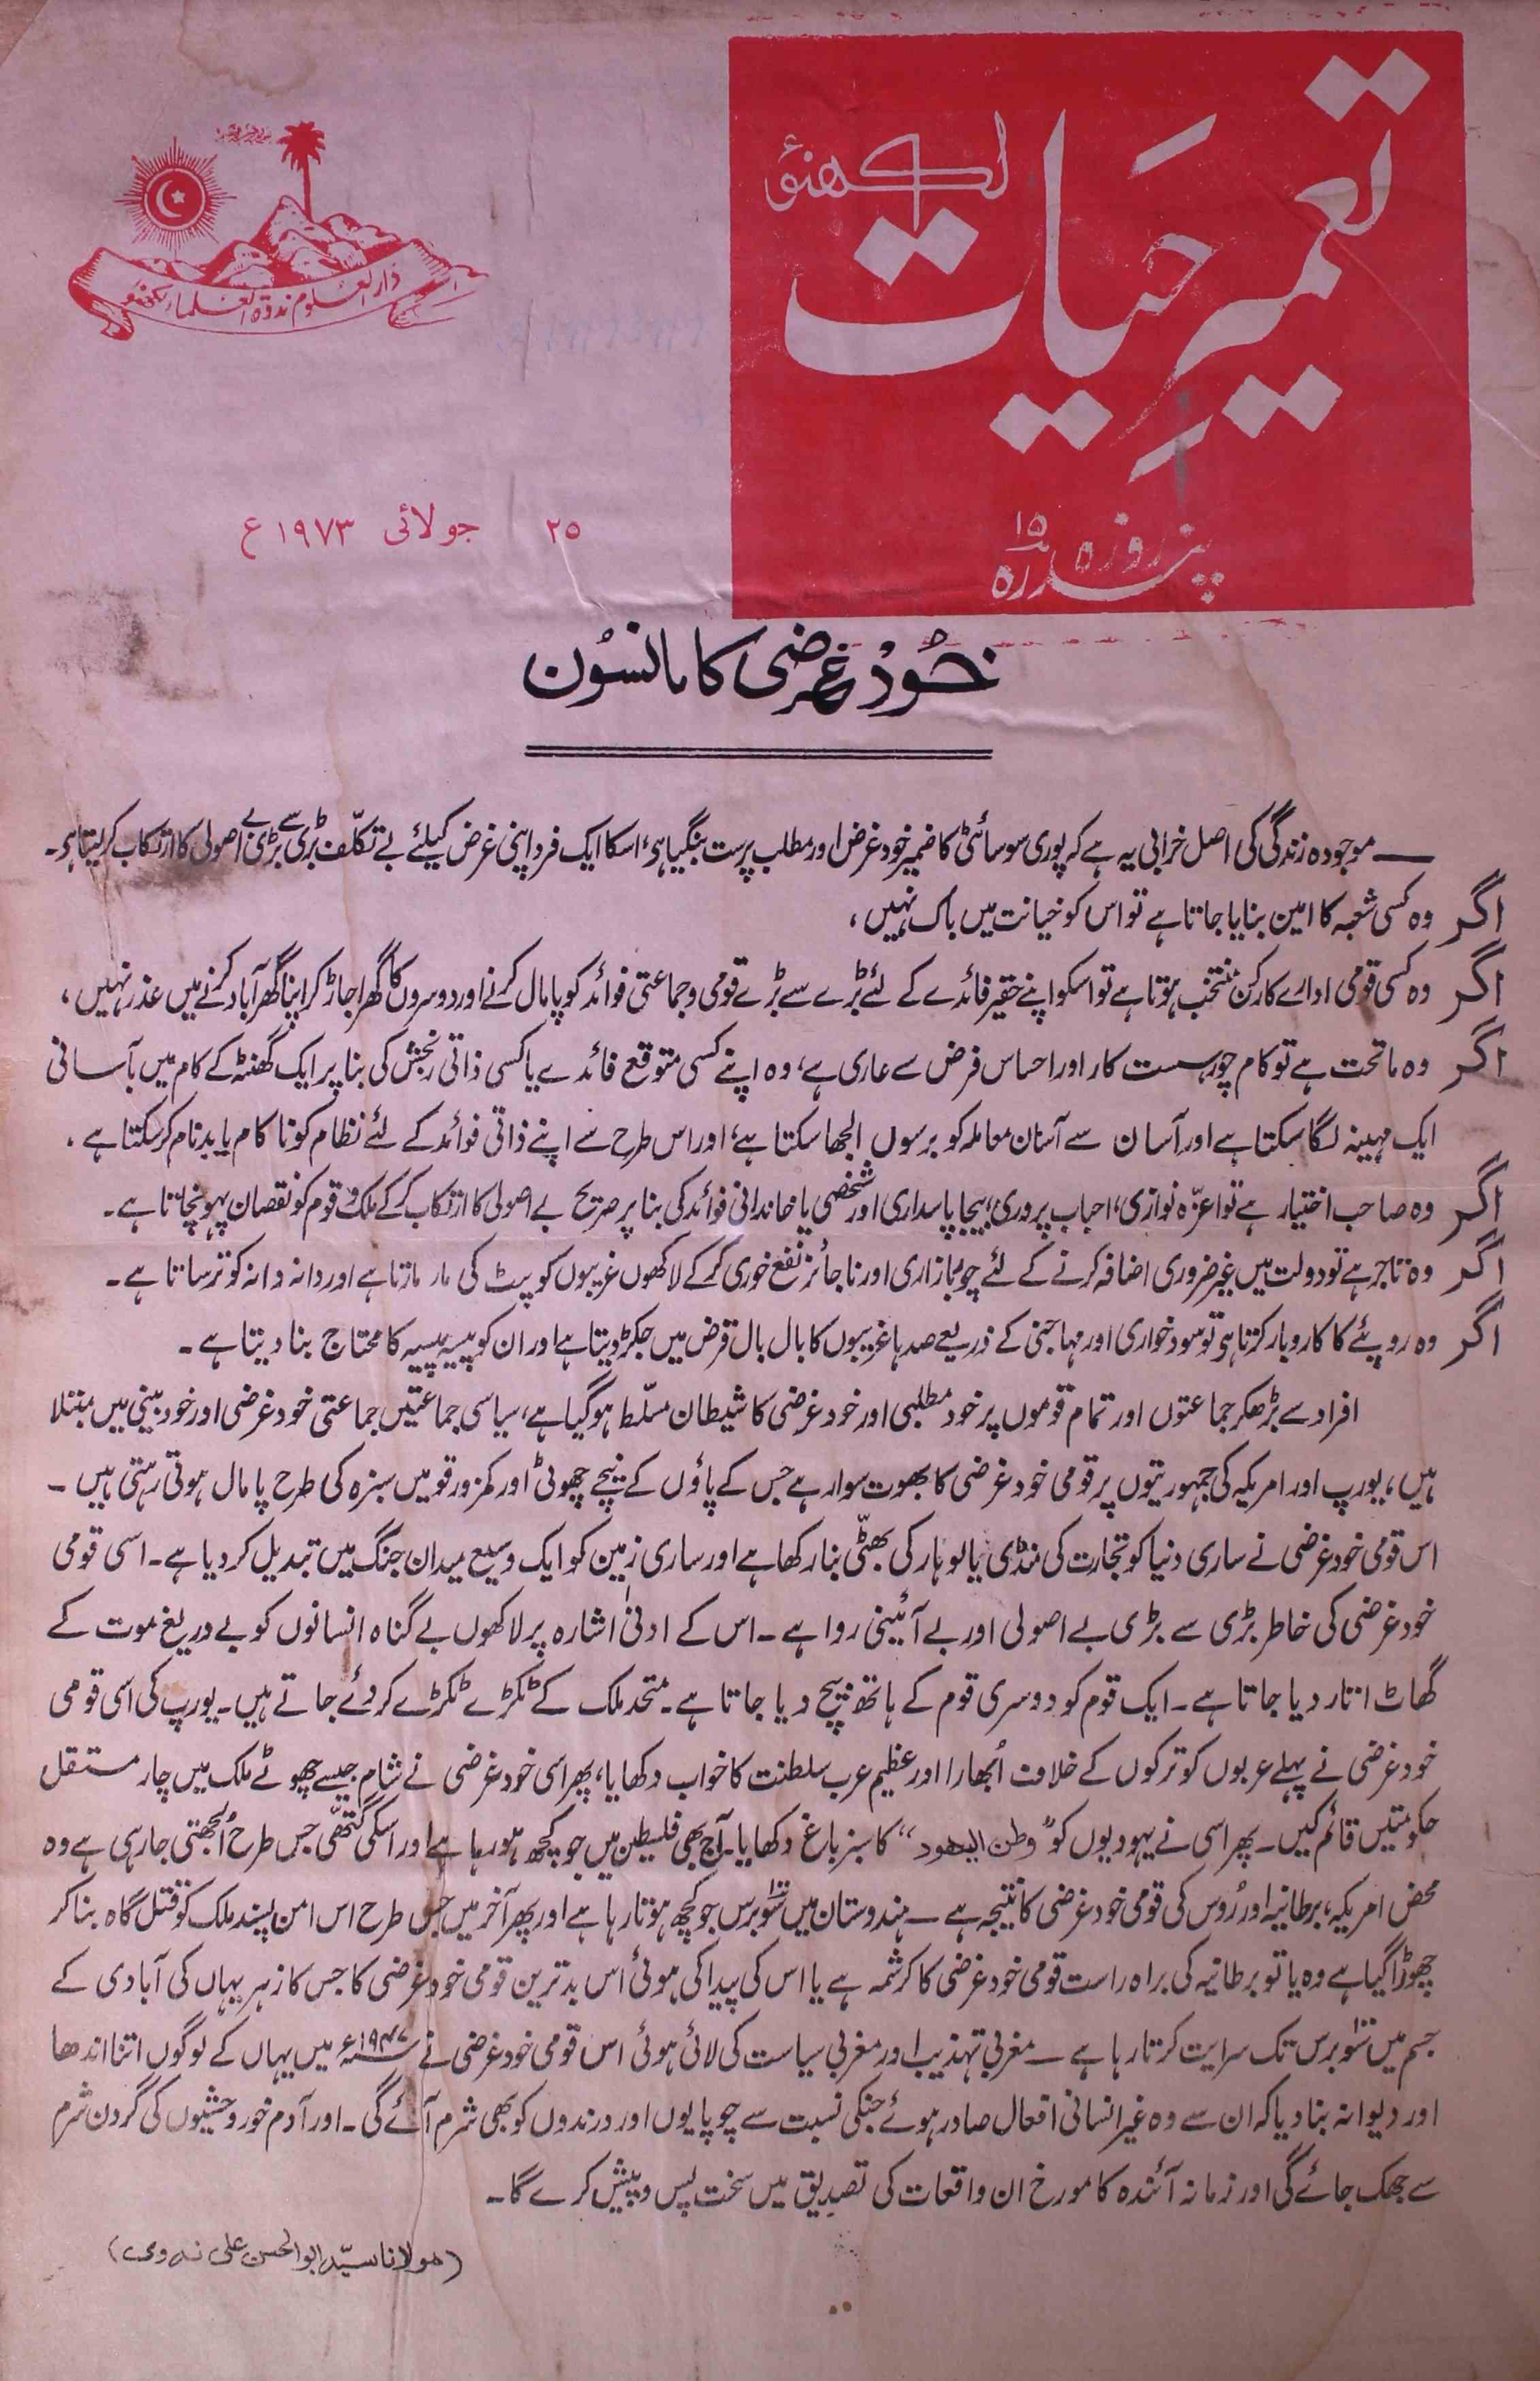 تعمیرِ حیات
لکھنؤ
پندرہ ۱۵ روزہ
دار العلوم ندوۃ العلماء لکھنؤ
۲۵ جولائی ۱۹۷۳ ع
خود غرضی کا مانسُون
— موجودہ زندگی کی اصل خرابی یہ ہے کہ پوری سوسائٹی کا ضمیر خود غرض اور مطلب پرست بنگیا ہے، اسکا ایک فرد اپنی غرض کیلئے بے تکلّف بڑی سے بڑی بے اصولی کا ارتکاب کر لیتا ہے۔
اگر وہ کسی شعبہ کا امین بنایا جاتا ہے تو اس کو خیانت میں باک نہیں،
اگر وہ کسی قومی ادارے کا رکن منتخب ہوتا ہے تو اسکو اپنے حقیر فائدے کے لئے بڑے سے بڑے قومی و جماعتی فوائد کو پامال کرنے اور دوسروں کا گھر اجاڑ کر اپنا گھر آباد کرنے میں عذر نہیں،
اگر وہ ماتحت ہے تو کام چور، سست کار اور احساس فرض سے عاری ہے، وہ اپنے کسی متوقع فائدے یا کسی ذاتی رنجش کی بنا پر ایک گھنٹہ کے کام میں بآسانی
ایک مہینہ لگا سکتا ہے اور آسان سے آسان معاملہ کو برسوں الجھا سکتا ہے، اور اس طرح سے اپنے ذاتی فوائد کے لئے نظام کو ناکام یا بدنام کر سکتا ہے۔
اگر وہ صاحب اختیار ہے تو اعزّہ نوازی، احباب پروری، بیجا پاسداری اور شخصی یا خاندانی فوائد کی بنا پر صریح بے اصولی کا ارتکاب کر کے ملک و قوم کو نقصان پہونچاتا ہے۔
اگر وہ تاجر ہے تو دولت میں غیر ضروری اضافہ کرنے کے لئے چور بازاری اور ناجائز نفع خوری کر کے لاکھوں غریبوں کو پیٹ کی مار مارتا ہے اور دانہ دانہ کو ترساتا ہے۔
اگر وہ روپئے کا کاروبار کرتا ہو تو سود خواری اور مہاجنی کے ذریعے صدہا غریبوں کا بال بال قرض میں جکڑ دیتا ہے اور ان کو پیسہ پیسہ کا محتاج بنا دیتا ہے۔
افراد سے بڑھکر جماعتوں اور تمام قوموں پر خود مطلبی اور خود غرضی کا شیطان مسلّط ہو گیا ہے، سیاسی جماعتیں جماعتی خود غرضی اور خود بینی میں مبتلا
ہیں، یورپ اور امریکہ کی جمہوریتوں پر قومی خود غرضی کا بھوت سوار ہے جس کے پاؤں کے نیچے چھوٹی اور کمزور قومیں سبزہ کی طرح پامال ہوتی رہتی ہیں۔
اس قومی خود غرضی نے ساری دنیا کو تجارت کی منڈی یا لوہار کی بھٹّی بنا رکھا ہے اور ساری زمین کو ایک وسیع میدان جنگ میں تبدیل کر دیا ہے۔ اسی قومی
خود غرضی کی خاطر بڑی سے بڑی بے اصولی اور بے آئینی روا ہے۔ اس کے ادنیٰ اشارہ پر لاکھوں بے گناہ انسانوں کو بے دریغ موت کے
گھاٹ اتار دیا جاتا ہے۔ ایک قوم کو دوسری قوم کے ہاتھ بیچ دیا جاتا ہے۔ متحد ملک کے ٹکڑے ٹکڑے کر دئے جاتے ہیں۔ یورپ کی اسی قومی
خود غرضی نے پہلے عربوں کو ترکوں کے خلاف اُبھارا اور عظیم عرب سلطنت کا خواب دکھایا، پھر اسی خود غرضی نے شام جیسے چھوٹے ملک میں چار مستقل
حکومتیں قائم کیں۔ پھر اسی نے یہودیوں کو "وطن الیہود" کا سبز باغ دکھایا۔ آج بھی فلیسطن میں جو کچھ ہو رہا ہے اور اسکی گتھّی جس طرح اُلجھتی جا رہی ہے وہ
محض امریکہ، برطانیہ اور رُوس کی قومی خود غرضی کا نتیجہ ہے۔ ہندوستان میں سَو برس جو کچھ ہوتا رہا ہے اور پھر آخر میں جس طرح اس امن پسند ملک کو قتل گاہ بنا کر
چھوڑا گیا ہے وہ یا تو برطانیہ کی براہ راست قومی خود غرضی کا کرشمہ ہے یا اس کی پیدا کی ہوئی اس بدترین قومی خود غرضی کا جس کا زہر یہاں کی آبادی کے
جسم میں سَو برس تک سرایت کرتا رہا ہے۔ مغربی تہذیب اور مغربی سیاست کی لائی ہوئی اس قومی خود غرضی نے ۱۹۴۷ء میں یہاں کے لوگوں اتنا اندھا
اور دیوانہ بنا دیا کہ ان سے وہ غیر انسانی افعال صادر ہوئے جنکی نسبت سے چوپایوں اور درندوں کو بھی شرم آئے گی۔ اور آدم خور وحشیوں کی گردن شرم
سے جھک جائے گی اور زمانہ آئندہ کا مورخ ان واقعات کی تصدیق میں سخت پس و پیش کرے گا۔
(مولانا سیّد ابو الحسن علی ندوی)